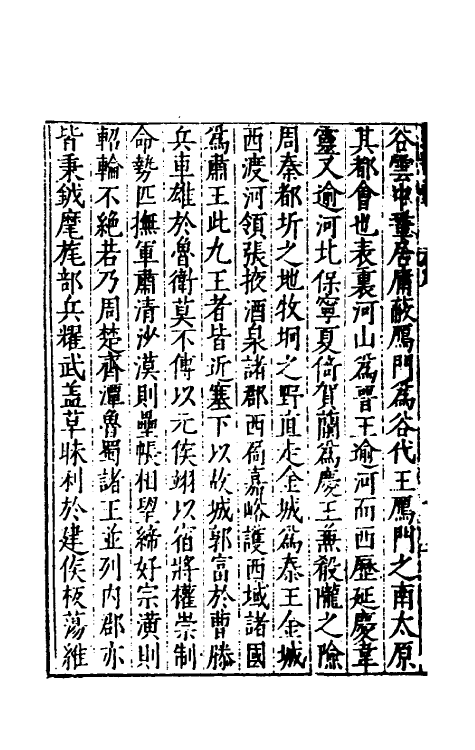 谷雲中鞏居庸蔽鴈門爲谷代王鴈門之南太原
其都會也表裏河山爲晉王逾河而西歷延慶韋
靈又逾河北保寧夏倚賀蘭爲慶王兼殽隴之險
周秦都圻之地牧坰之野直走金城爲秦王金城
西渡河領張掖酒泉諸郡西扃嘉峪護西域諸國
爲肅王此九王者皆近塞下以故城郭富於曹滕
兵車雄於魯衛莫不傅以元侯翊以宿將權崇制
命勢匹撫軍肅清沙漠則壘帳相望締好宗潢則
軺輪不絕若乃周楚齊潭魯蜀諸王並列内郡亦
皆秉鉞麾旄部兵耀武盖草昧利於建侯板蕩維